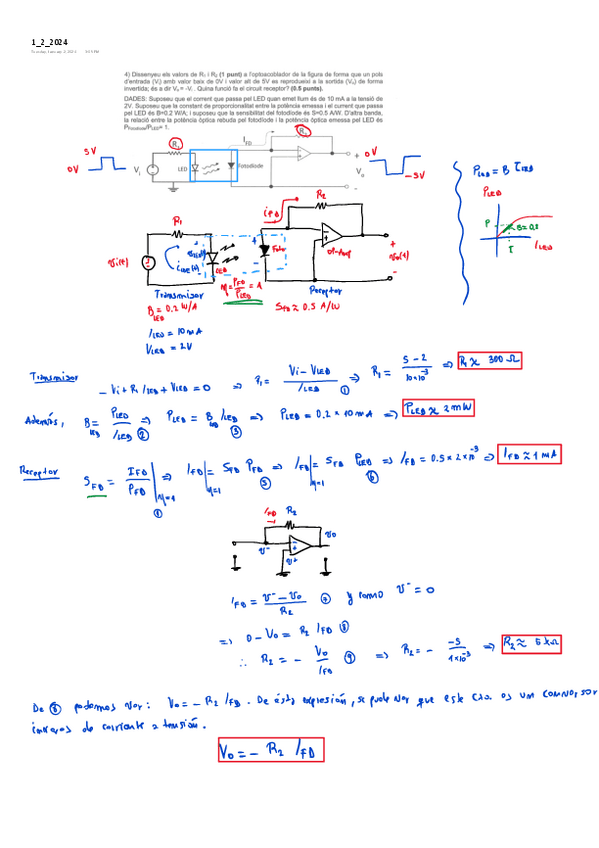 1_2_2024
4) Dissenyeu els valors de R₁ i R₂ (1 punt) a l'optoacoblador de la figura de forma que un pols
d'entrada (Vᵢ) amb valor baix de 0V i valor alt de 5V es reprodueixi a la sortida (Vₒ) de forma
invertida; és a dir Vₒ = -Vᵢ. Quina funció fa el circuit receptor? (0.5 punts).
DADES: Suposeu que el corrent que passa pel LED quan emet llum és de 10 mA a la tensió de
2V. Suposeu que la constant de proporcionalitat entre la potència emessa i el corrent que passa
pel LED és B=0.2 W/A; i suposeu que la sensibilitat del fotodíode és S=0.5 A/W. D'altra banda,
la relació entre la potència òptica rebuda pel fotodíode i la potència òptica emessa pel LED és
P_Fotodíode/P_LED= 1.
5V
0V
Vᵢ
R₁
LED
Fotodíode
I_FD
R₂
Vₒ
0V
-5V
P_LED = B I_LED
P_LED
P
B=0.2
I
I_LED
R₁
Vi(t)
i_LED(t)
LED
i_FD
R₂
Foto
OP-Amp
+
Vo(t)
-
Transmisor
Receptor
B_LED = 0.2 W/A
η = P_FD/P_LED = 1
S_FD ≈ 0.5 A/W
I_LED = 10 mA
V_LED = 2V
Transmisor
- Vi + R₁ I_LED + V_LED = 0 ⇒ R₁ = (Vi - V_LED)/I_LED ① ⇒ R₁ = (5 - 2)/(10×10⁻³) ⇒ R₁ ≈ 300 Ω
Además, B_LED = P_LED/I_LED ② ⇒ P_LED = B_LED I_LED ③ ⇒ P_LED = 0.2 × 10 mA ⇒ P_LED ≈ 2 mW
Receptor
S_FD = I_FD/P_FD |η=1 ④ ⇒ I_FD|η=1 = S_FD P_FD ⑤ ⇒ I_FD|η=1 = S_FD P_LED ⑥ ⇒ I_FD = 0.5 × 2×10⁻³ ⇒ I_FD ≈ 1 mA
I_FD
R₂
V⁻
V⁺
Vo
I_FD = (V⁻ - Vo)/R₂ ⑦ y como V⁻ = 0
⇒ 0 - Vo = R₂ I_FD ⑧
∴ R₂ = - Vo/I_FD ⑨ ⇒ R₂ = - (-5)/(1×10⁻³) ⇒ R₂ ≈ 5 kΩ
De ⑧ podemos ver: Vo = - R₂ I_FD. De ésta expresión, se puede ver que este cto. es un conversor
inversos de corriente a tensión.
Vo = - R₂ I_FD